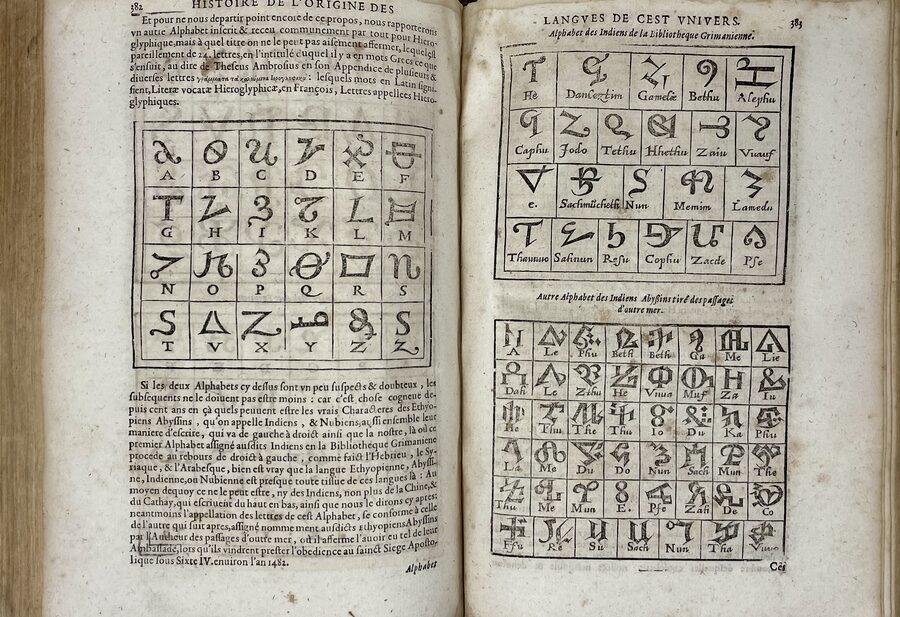 382 HISTOIRE DE L'ORIGINE DES
Et pour ne nous departir point encore de ce propos, nous rapporterõs
vn autre Alphabet inscrit & receu communement par tout pour Hiero-
glyphique, mais à quel titre on ne le peut pas aisément affermer, lequel est
pareillement de 24. lettres, en l'intitulé duquel il y a en mots Grecs ce que
s'ensuit, au dite de Theseus Ambrosius en son Appendice de plusieurs &
diuerses lettres γράμματα τὰ : lesquels mots en Latin signi-
fient, Literæ vocatæ Hieroglyphicæ, en François, Lettres appellees Hiero-
glyphiques.
A B C D E F
G H I K L M
N O P Q R S
T V X Y Z
Si les deux Alphabets cy dessus sont vn peu suspects & doubteux, les
subsequents ne le doiuent pas estre moins : car c'est chose cogneuë de-
puis cent ans en çà quels peuuent estre les vrais Characteres des Ethyo-
piens Abyssins, qu'on appelle Indiens, & Nubiens, aussi ensemble leur
maniere d'escrire, qui va de gauche à droict ainsi que la nostre, là où ce
premier Alphabet assigné ausdits Indiens en la Bibliotheque Grimaniene
procede au rebours de droict à gauche, comme faict l'Hebrieu, le Sy-
riaque, & l'Arabesque, bien est vray que la langue Ethyopienne, Abyssi-
ne, Indienne, ou Nubienne est presque toute tissue de ces langues là : Au
moyen dequoy ce ne peut estre, ny des Indiens, non plus de la Chine, &
du Cathay, qui escriuent du haut en bas, ainsi que nous le dirons cy apres:
neantmoins l'appelation des lettres de cest Alphabet, se conforme à celle
de l'autre qui suit apres, assigné nommement ausdicts Ethyopiens Abyssins
par l'Autheur des passages d'outre mer, où il afferme l'auoir eu tel de leur
Ambassade, lors qu'ils vindrent prester l'obedience au sainct Siege Aposto-
lique sous Sixte IV. enuiron l'an 1482.
Alphabet
LANGVES DE CEST VNIVERS. 383
Alphabet des Indiens de la Bibliotheque Grimanienne.
He Dansoztim Gamelæ Bethu Alephu
Caphu Jodo Tethu Hhethu Zaiu Vuauf
e. Sachmücheth Nun Memim Lamedu
Thauuuo Sahnun Resu Cophu Zaede Pse
Autre Alphabet des Indiens Abyssins tiré des passages
d'outre mer.
A Le Phu Beth Beth Ga Me Lie
Dah Le Zthu He Vuua Muf Za Iu
He Thu The Thu Io Du Ka Phu
La Me Du Do Nun Sach Mun The
Thu Me Mun E. Pse Zah De Co
Fsu Re Su Sach Nun Tha Vuuo
Cei